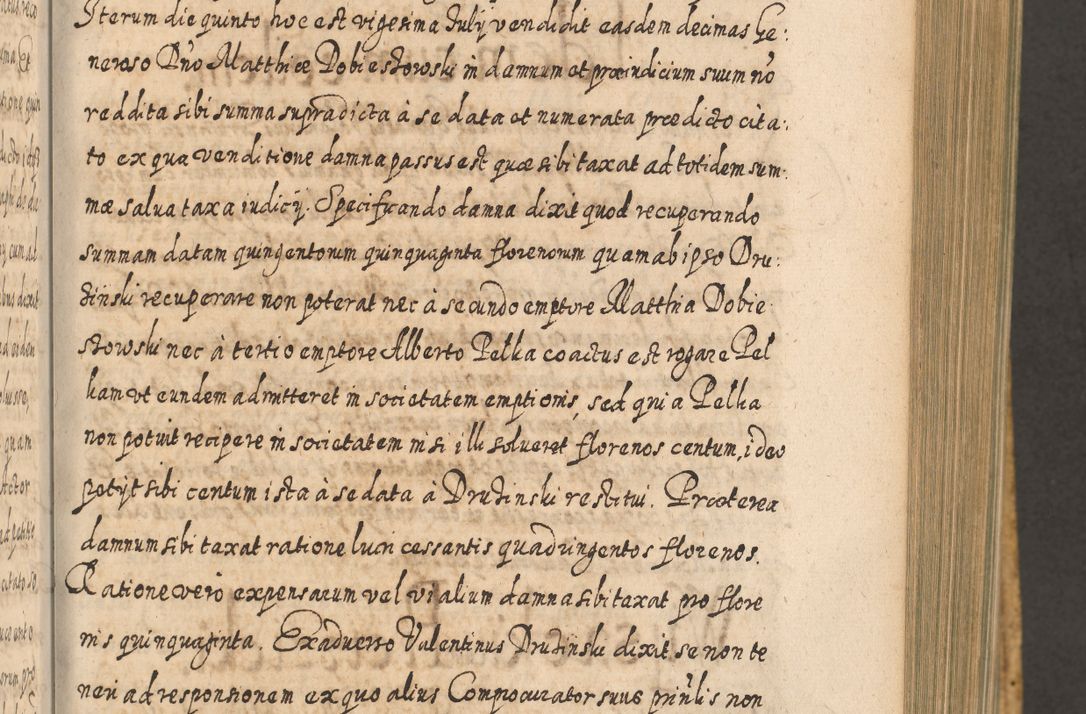 Iterum die quinto hoc est vigesima Iulij vendidit easdem decimas Ge:
neroso Dno Matthiæ Dobiestowski in damnum et præiudicium suum no
reddita sibi summa supradicta à se data et numerata prædicto cita:
to ex qua venditione damna passus est quæ sibi taxat ad totidem sum:
mæ salua taxa iudicij. Specificando damna dixit quod recuperando
summam datam quingentorum quinquaginta florenorum quam ab ipso Dru:
zinski recuperare non poterat nec à secundo emptore Matthia Dobie
stowski nec à tertio emptore Alberto Pelka coactus est rogare Pel
kam ut eundem admitteret in societatem emptionis, sed quia Pelka
non potuit recipere in societatem nisi illi solueret florenos centum, ideo
potijt sibi centum ista à se data à Druzinski restitui. Præterea
damnum sibi taxat ratione lucri cessantis quadringentos florenos.
Ratione vero expensarum vel vialium damna sibi taxat pro flore
nis quinquaginta. Exaduerso Valentinus Druzinski dixit se non te
neri ad responsionem ex quo alius Comprocurator suus prinlis non